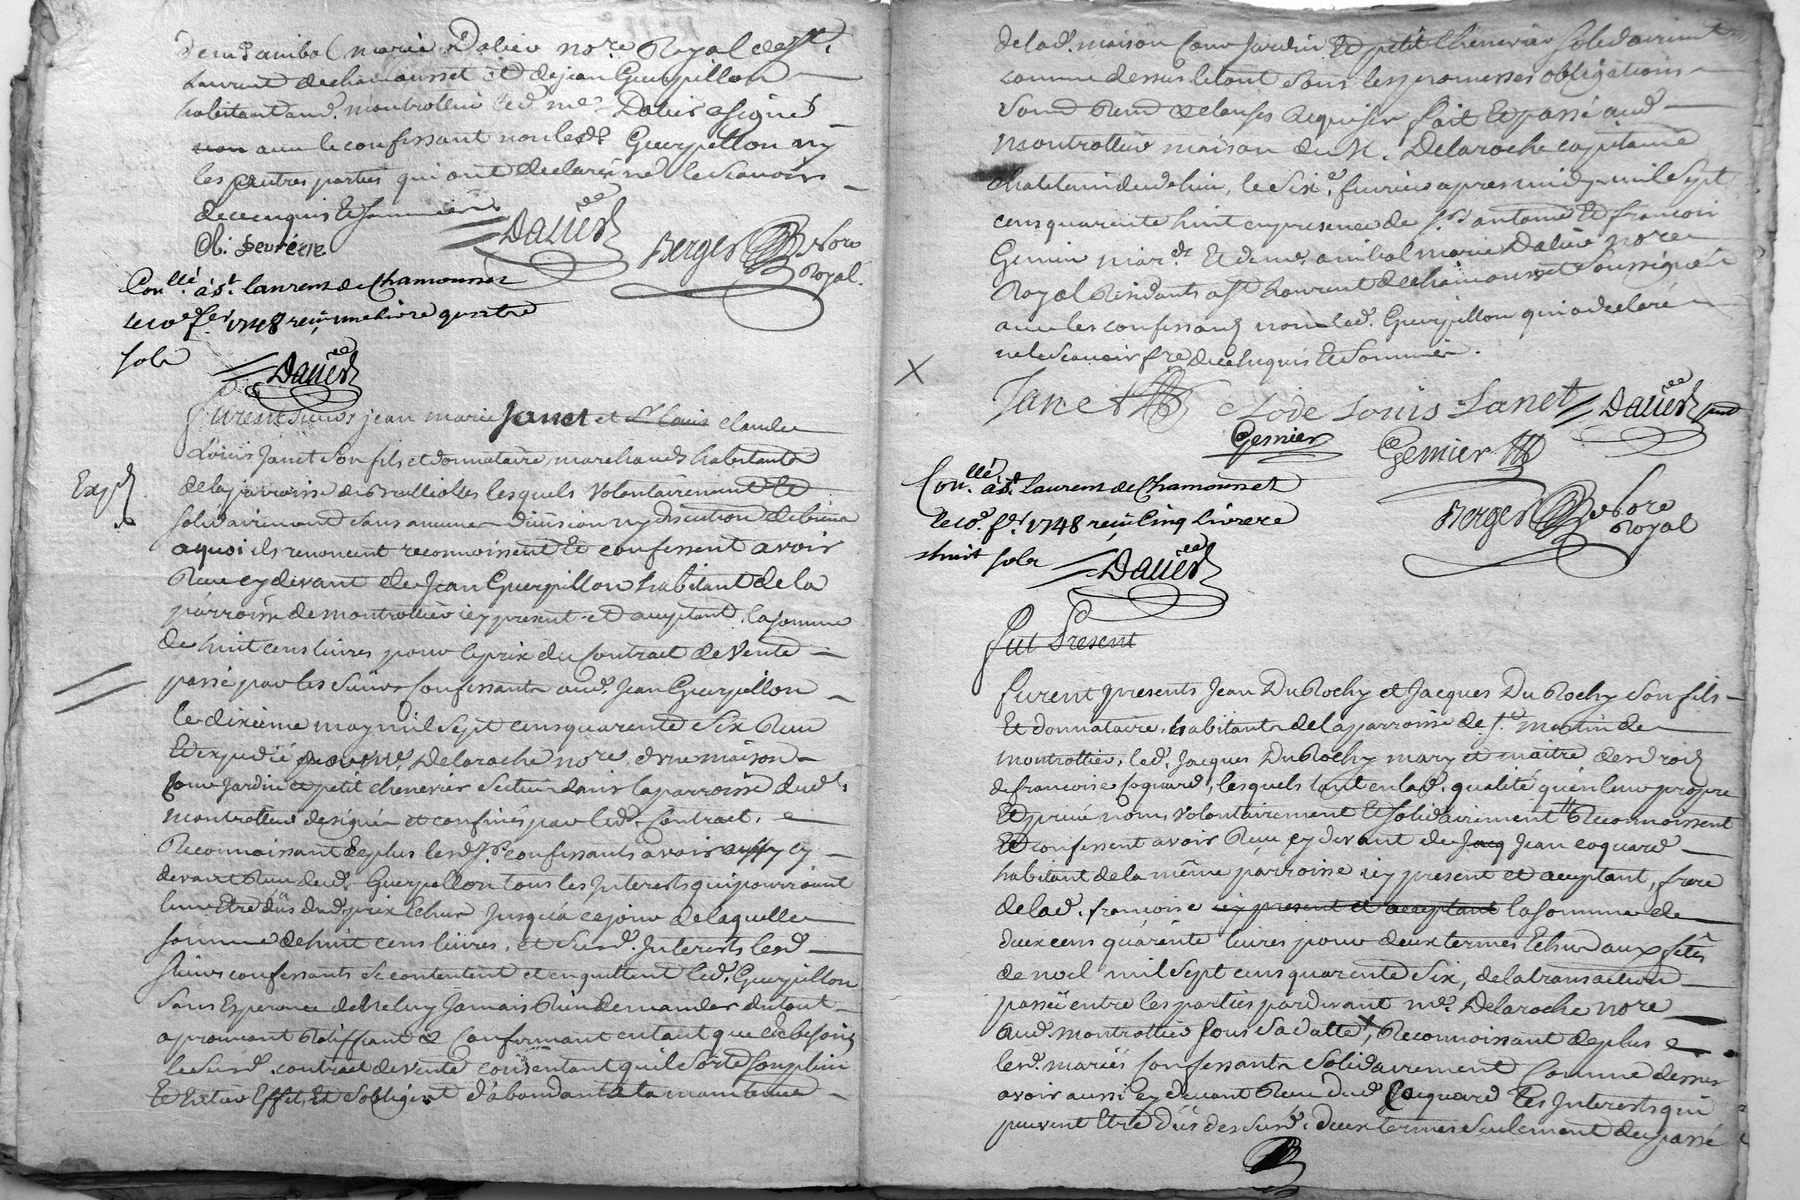 de me anibal marie Dalier nore Royal de st.
Laurent de chamousset et de jean Guerpillon
habitant aud. montrottier led. me. Dalier a signé
avec le confessant non led. Guerpillon ny
les autres parties qui ont declaré ne le scavoir
de ce enquis et sommés
Dalier
Berger nore
Royal
Conllé. à st. laurens de Chamousset
le 10e fer 1748 reçu une livre quatre
sols
Dalier
furent jean marie Janet et claude
Louis Janet son fils et donnataire, marchands habitants
de la parroisse de Brullioles lesquels volontairement et
solidairement sans aucune division ny discution de biens
a quoi ils renoncent reconnoissent et confessent avoir
Reçu cy devant de Jean Guerpillon habitant de la
parroisse de montrottier icy present et acceptant, la somme
de huit cens livres pour le prix du contrat de vente
passé par les confessants aud. Jean Guerpillon
le dixieme may mil sept cens quarente six Reçu
et expedié par me. Delaroche nore. d'une maison
cour jardin et petit chenevier scitués dans la parroisse dud.
montrottier designés et confinés par led. contract.
Reconnoissant de plus lesd. confessants avoir aussy cy
devant Reçu dud. Guerpillon tous les Interests qui pourroient
leur etre dûs dud. prix echus jusqu'à ce jour de laquelle
somme de huit cens livres, et susd. Interests lesd.
confessants se contentent et en quittent led. Guerpillon
sans esperance de ne luy jamais Rien demander du tout
aprouvant Ratiffiant et confirmant en tant que de besoin
le susd. contract de vente consentant qu'il sorte son plein
et entier effet, et s'obligent d'abondant à la maintenue
Exp.
de lad. maison cour jardin et petit chenevier solidairement
comme dessus le tout sous les promesses obligations
et clauses Requises fait et passé aud.
montrottier maison du sr. Delaroche capitaine
chatelain dud. lieu, le six. fevrier apres midy mil sept
cens quarente huit en presence de srs antoine et francois
Gemier mards. et de me. anibal marie Dalier nore
Royal Residants a st. Laurent de chamousset soussignés
avec les confessants non led. Guerpillon qui a declaré
ne le scavoir fre de ce enquis et sommé.
Janet Clode Louis Janet Dalier
Gemier Gemier
Conllé. à st. laurens de Chamousset
le 10e. fer 1748 reçu Cinq livres
huit sols Dalier
Berger nore
Royal
fut Present
furent presents Jean Du Rochy et Jacques Du Rochy son fils
et donnataire, habitants de la parroisse de st. martin de
montrottier, led. Jacques Du Rochy mary et maitre des droits
de francoise Coquard, lesquels tant en lad. qualité qu'en leur propre
et privé nom, volontairement et solidairement Reconnoissent
et confessent avoir Reçu cy devant de Jacq Jean coquard
habitant de la même parroisse icy present et acceptant, frere
de lad. francoise icy present et acceptant la somme de
deux cens quarente livres pour deux termes echus aux fêtes
de noel mil sept cens quarente six, de la transaction
passée entre les parties pardevant me. Delaroche nore
aud. montrottier sous sa datte, Reconnoissant de plus
lesd. mariés confessants solidairement comme dessus
avoir aussi cy devant Reçu dud. Coquard les Interests qui
peuvent etre dûs des susd. deux termes seulement du passé